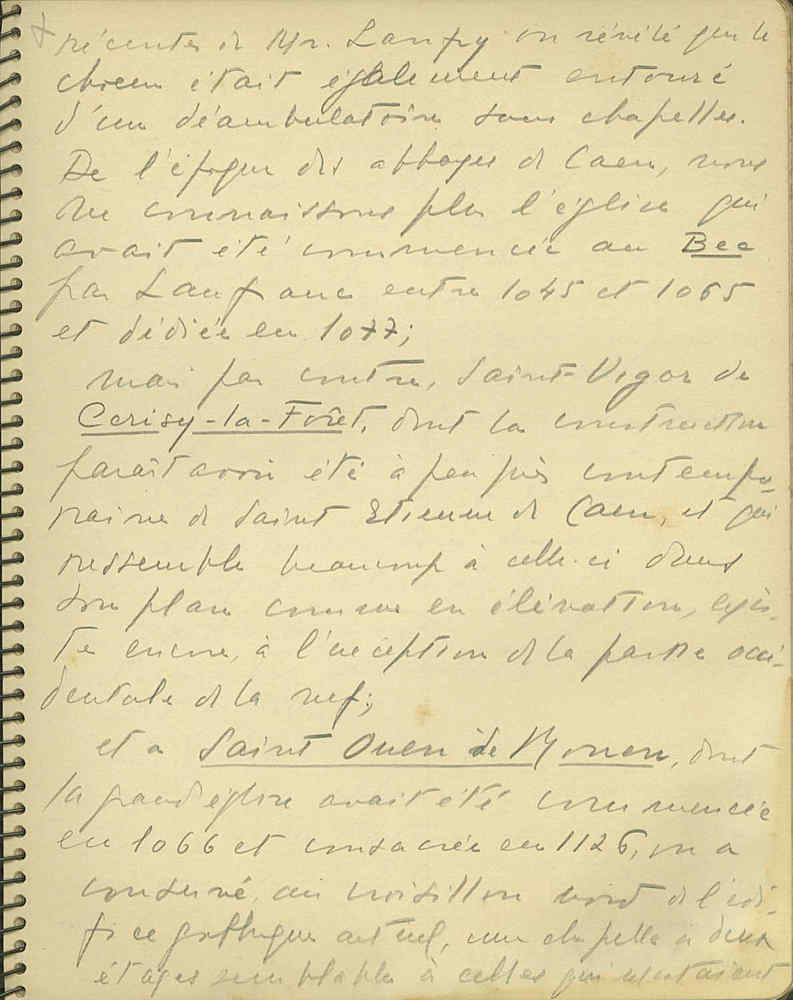 récentes de Mr. Lanfry on révélé que le
chœur était également entouré
d'un déambulatoire sans chapelles.
De l'époque des abbayes de Caen, nous
ne connaissons plus l'église qui
avait été commencée au Bec
par Lanfranc entre 1045 et 1065
et dédiée en 1077;
mais par contre, Saint-Vigor de
Cerisy-la-Forêt, dont la construction
paraît avoir été à peu près contempo-
raine de Saint Etienne de Caen, et qui
ressemble beaucoup à celle-ci dans
son plan comme en élévation, exis-
te encore, à l'exception de la partie occi-
dentale de la nef;
et a Saint Ouen de Rouen, dont
la grand église avait été commencée
en 1066 et consacrée en 1126, on a
conservé, au croisillon nord de l'édi-
fice gothique actuel, une chapelle à deux
étages semblable à celles qui existaient